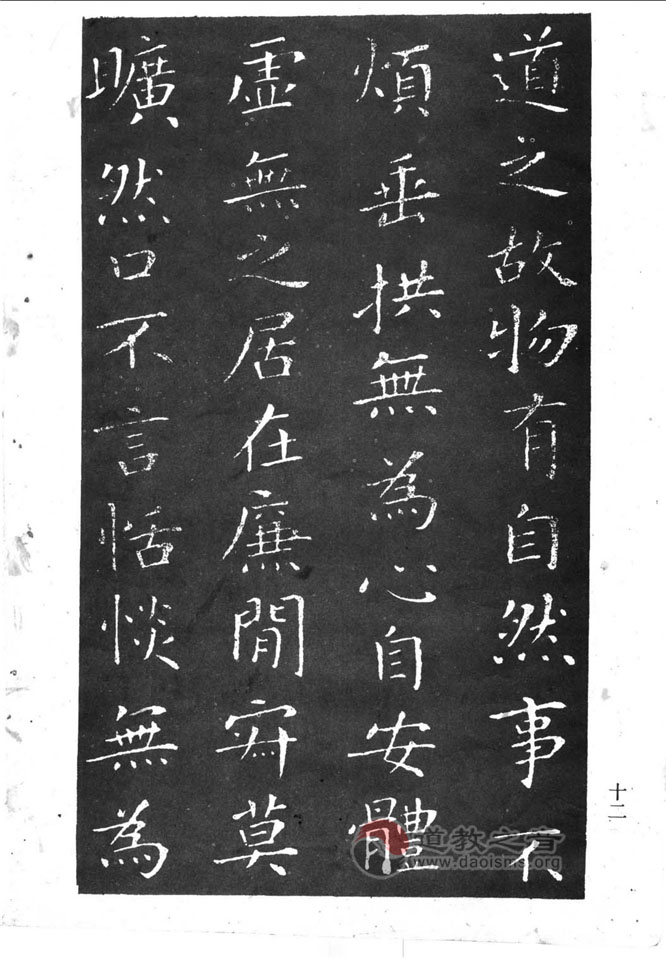 道之故物有自然事不
煩垂拱無為心自安體
虛無之居在廉間寂莫
曠然口不言恬惔無為
十二
道教之音
www.daoisms.org